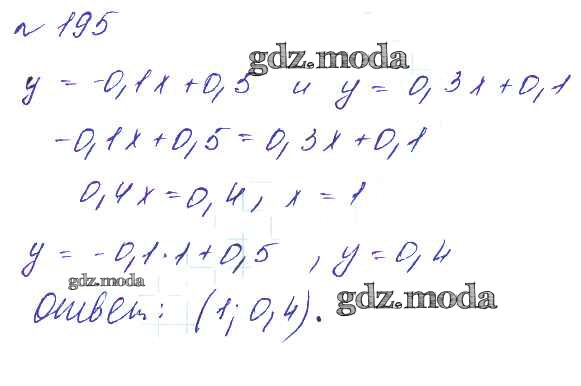 № 195
gdz.moda
y = -0,1x + 0,5 и y = 0,3x + 0,1
-0,1x + 0,5 = 0,3x + 0,1
0,4x = 0,4, x = 1
y = -0,1·1 + 0,5 , y = 0,4
gdz.moda
Ответ: (1; 0,4).
gdz.moda